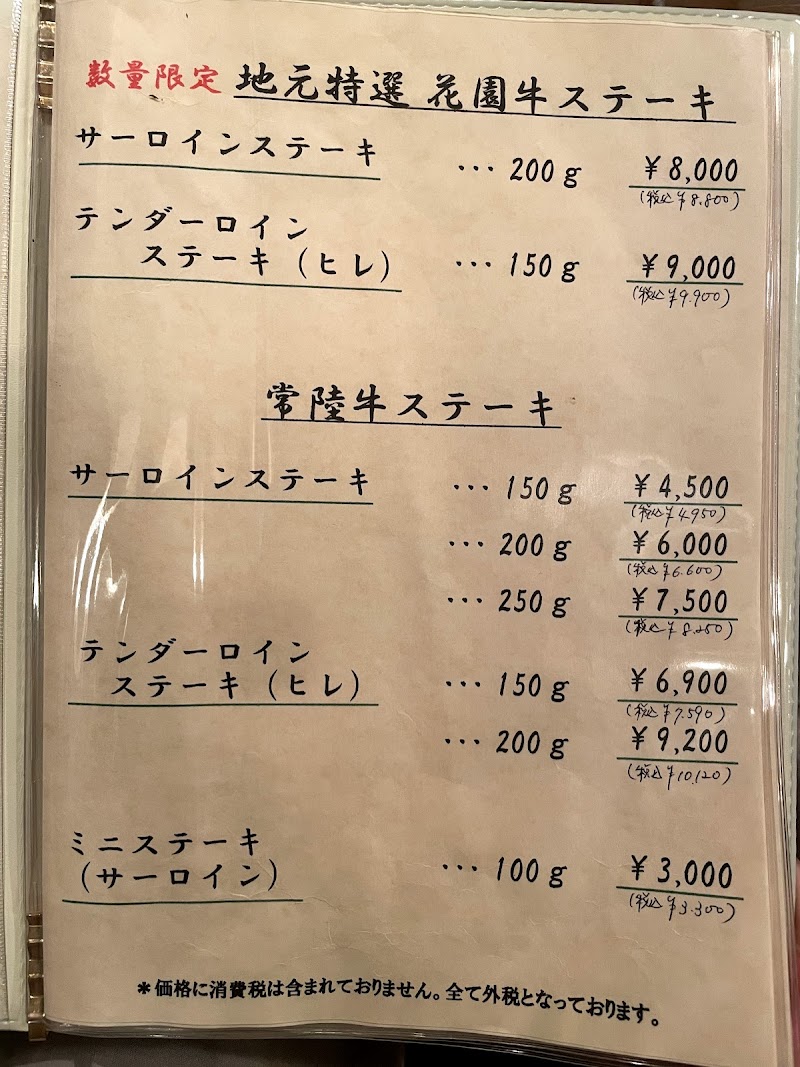 数量限定 地元特選 花園牛ステーキ
サーロインステーキ ・・・ 200g ¥8,000
(税込¥8.800)
テンダーロイン
ステーキ(ヒレ) ・・・ 150g ¥9,000
(税込¥9.900)
常陸牛ステーキ
サーロインステーキ ・・・ 150g ¥4,500
(税込¥4.950)
・・・ 200g ¥6,000
(税込¥6.600)
・・・ 250g ¥7,500
(税込¥8.250)
テンダーロイン
ステーキ(ヒレ) ・・・ 150g ¥6,900
(税込¥7.590)
・・・ 200g ¥9,200
(税込¥10.120)
ミニステーキ
(サーロイン) ・・・ 100g ¥3,000
(税込¥3.300)
*価格に消費税は含まれておりません。全て外税となっております。